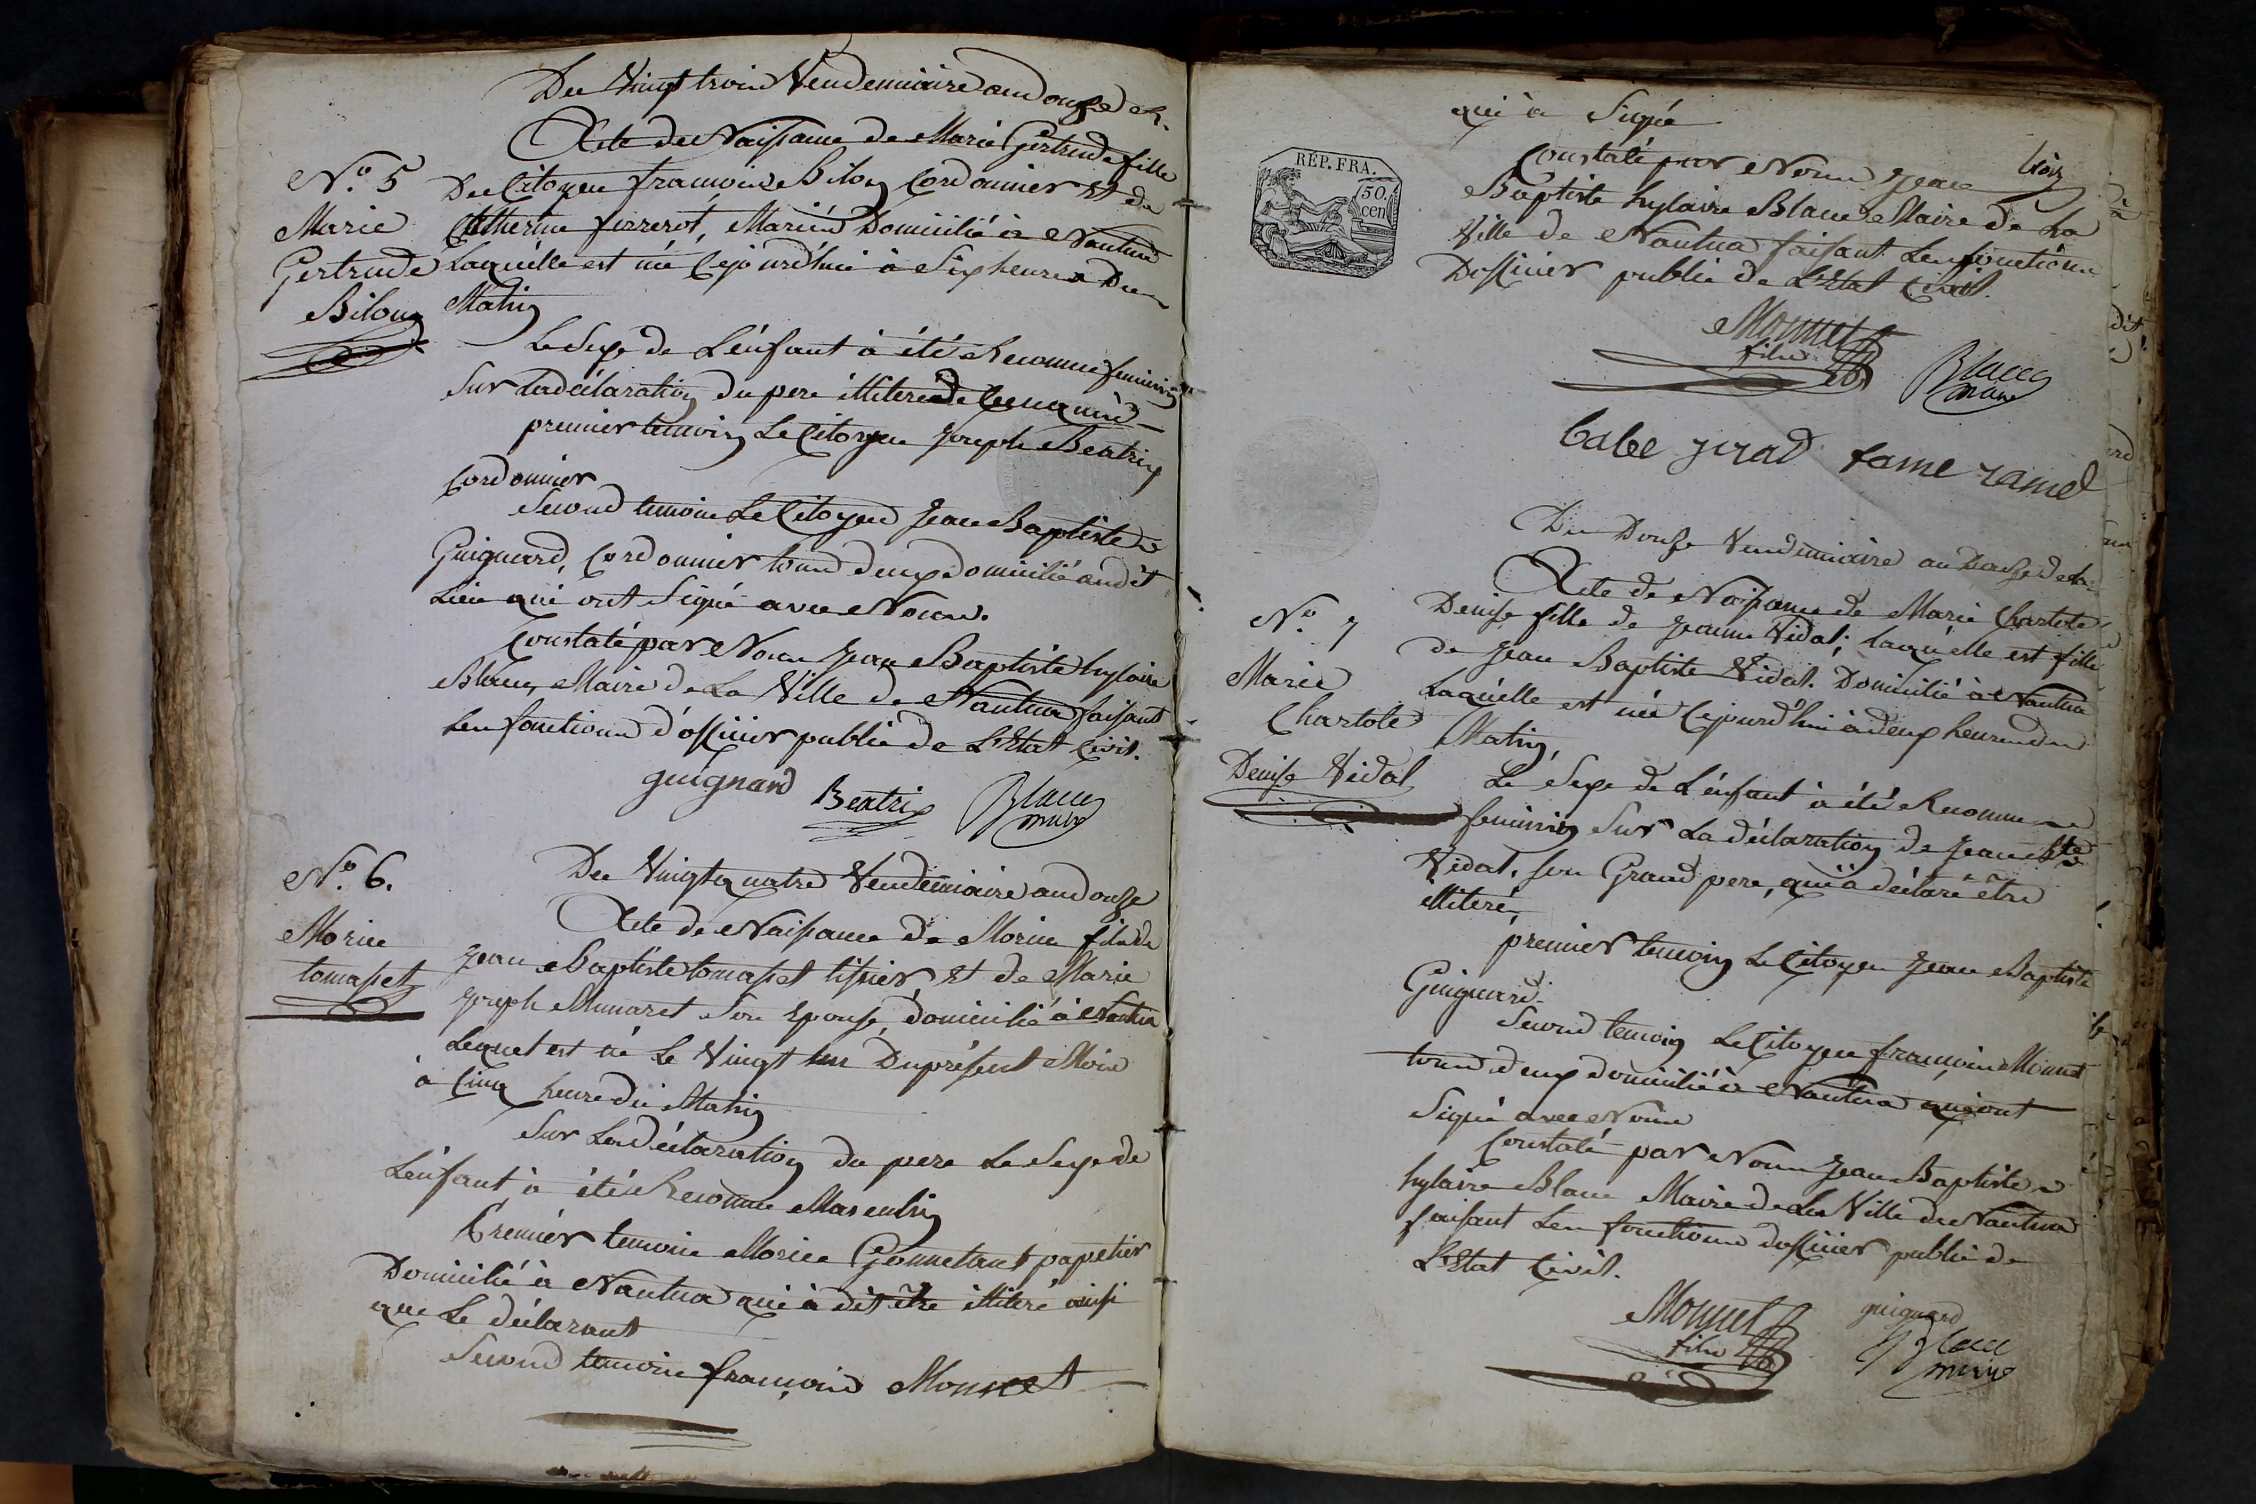 Du Vingt trois Vendemiaire an onze
Acte de Naissance de Marie Gertrude fille
Nº. 5
Du Citoyen francoise Bilon Cordonnier Et de
Marie
Catherine firrerot, Mariés Domicilié à Nantua
Gertrude
Laquelle est née Cejourd'hui à Six heures Du
Bilon
Matin
Le Sexe de L'énfant à été Reconnue feminin
Sur La déclaration du pere illiteré de Ce requis
premier temoin Le Citoyen Joseph Beatrix
Cordonnier
Second temoin Le Citoyen Jean Baptiste
Guignard, Cordonnier tous deux domicilié audit
Lieu qui ont Signé avec Nous.
Constaté par Nous Jean Baptiste hylaire
Blanc, Maire de La Ville de Nantua faisant
Les fonctions d'officier public de L'Etat Civil.
guignard Beatrix Blanc
maire
Nº. 6.
Du Vingt quatre Vendemiaire an douze
Acte de Naissance de Morice fils de
Morice
Jean Baptiste tomasset tissier, Et de Marie
tomasset
Joseph Munaret Son Epouse, domicilié à Nantua
Lequel est né Le Vingt un Du présent Mois
à Cinq heure du Matin
Sur La déclaration du pere Le Sexe de
L'énfant à été Reconnue Masculin
Premiér temoin Morice Gonnetant papetier
Domicilié à Nantua qui à dit être illiteré ainsi
que Le déclarant
Second temoin françois Monnet
qui à Signé
trois
RÉP. FRA.
50.
cen
Constaté par Nous Jean
Baptiste hylaire Blanc Maire de La
Ville de Nantua faisant Les fonctions
Dofficier public de L'Etat Civil.
Monnet
fils
Blanc
maire
babe girad fame ramel
Du Douze Vendemiaire an Douze
Acte de Naissance de Marie Charlote
Nº. 7
Denise fille de Jeanne Vidal; laquélle est fille
Marie
de Jean Baptiste Vidal. Domicilié à Nantua
Charlote
Laquélle est née Cejourd'hui à deux heures du
Denise Vidal
Matin,
Le Sexe de L'énfant à été Reconnue
feminin Sur La déclaration de Jean Bte
Vidal, Son Grand pere, qui à déclaré être
illiteré,
premier temoin Le Citoyen Jean Baptiste
Guignard.
Second temoin Le Citoyen françois Monnet
tous deux domicilié à Nantua qui ont
Signé avec Nous
Constaté par Nous Jean Baptiste
hylaire Blanc Maire de La Ville de Nantua
faisant Les fonctions dofficier public de
L'Etat Civil.
Monnet guignard
fils Blanc
maire